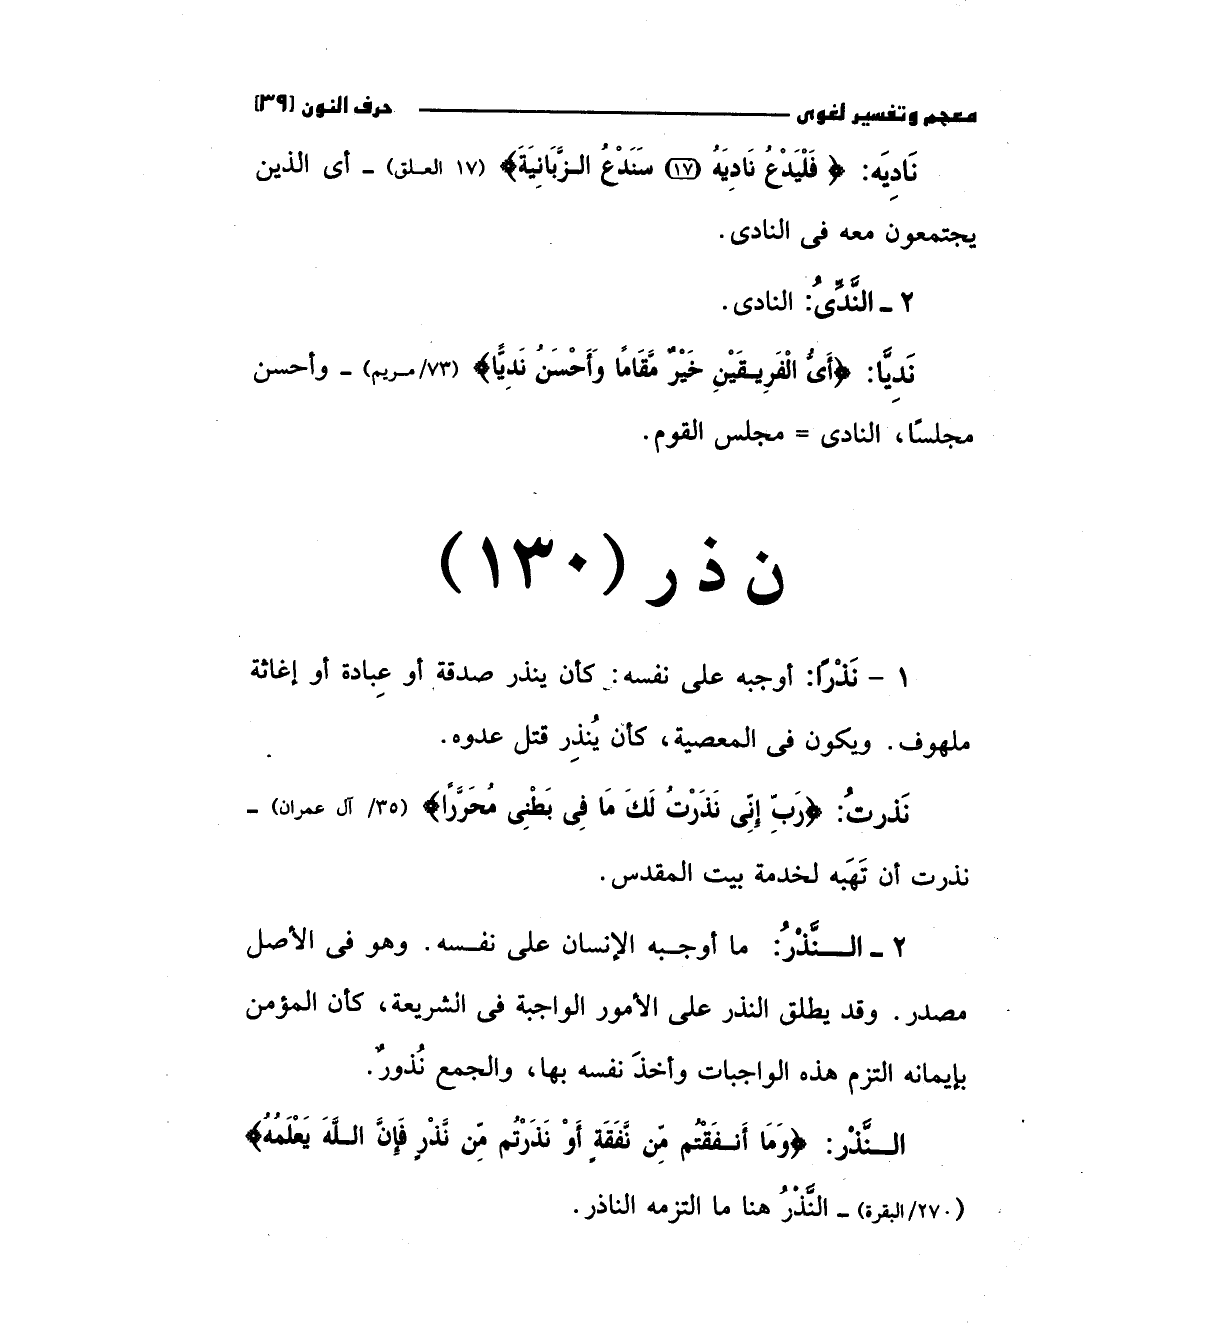 معجم وتفسير لغوى حرف النون [٣٩]
نَادِيَه: ﴿ فَلْيَدْعُ نَادِيَهُ (١٧) سَنَدْعُ الـزَّبَانِيَةَ﴾ (١٧ العـلق) ـ أى الذين
يجتمعون معه فى النادى.
٢ ـ النَّدِّىُ: النادى.
نَدِيًّا: ﴿أَىُّ الْفَرِيـقَيْنِ خَيْرٌ مَّقَامًا وَأَحْسَنُ نَدِيًّا﴾ (٧٣/مـريم) ـ وأحسن
مجلسًا، النادى = مجلس القوم.
ن ذ ر (١٣٠)
١ – نَذْرًا: أوجبه على نفسه: كأن ينذر صدقة أو عبادة أو إغاثة
ملهوف. ويكون فى المعصية، كأن يُنذِر قتل عدوه.
نَذرتُ: ﴿رَبِّ إِنِّى نَذَرْتُ لَكَ مَا فِى بَطْنِى مُحَرَّرًا﴾ (٣٥/ آل عمران) ـ
نذرت أن تَهَبه لخدمة بيت المقدس.
٢ ـ الـــنَّذْرُ: ما أوجـبه الإنسان على نفـسه. وهو فى الأصل
مصدر. وقد يطلق النذر على الأمور الواجبة فى الشريعة، كأن المؤمن
بإيمانه التزم هذه الواجبات وأخذَ نفسه بها، والجمع نُذورٌ.
الـــنَّذْر: ﴿وَمَا أَنـفَقْتُم مِّن نَّفَقَةٍ أَوْ نَذَرْتُم مِّن نَّذْرٍ فَإِنَّ الـلَّهَ يَعْلَمُهُ﴾
(٢٧٠/البقرة) ـ النَّذْرُ هنا ما التزمه الناذر.